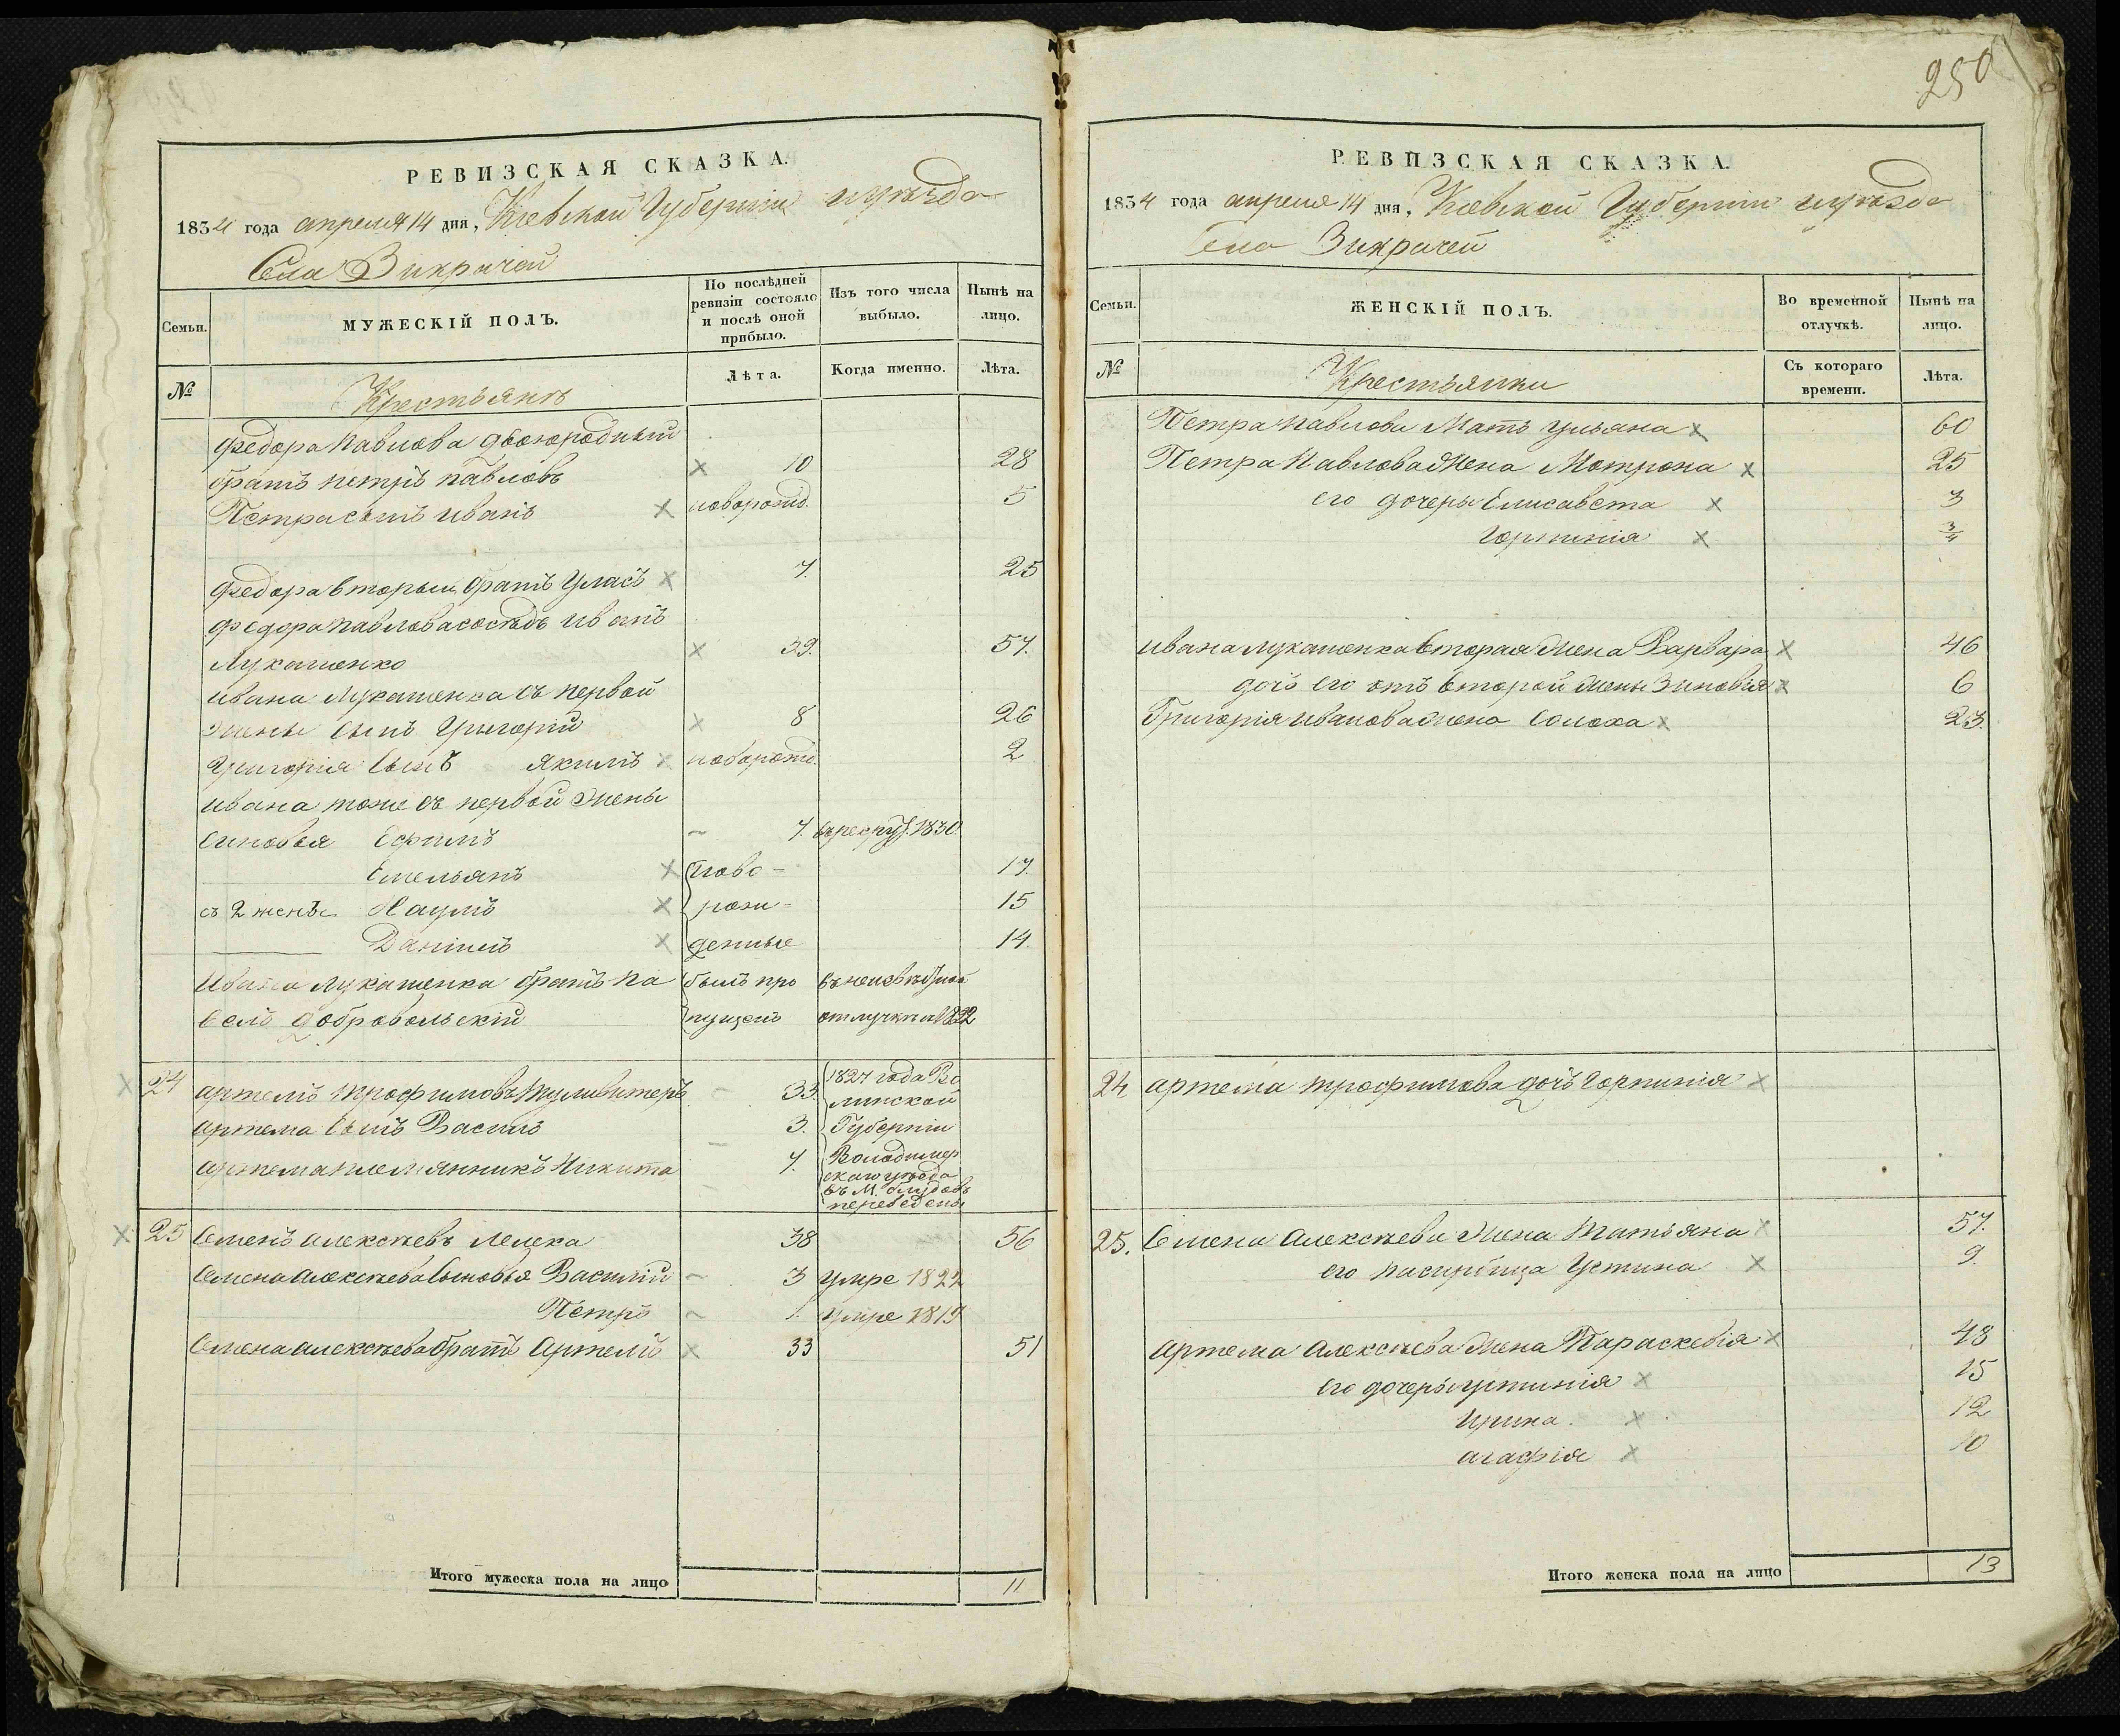 250
РЕВИЗСКАЯ СКАЗКА.
1834 года апреля 14 дня, Киевской Губернии и уѣзда
Села Викрачей
Семьи.
МУЖЕСКІЙ ПОЛЪ.
По послѣдней ревизіи состояло и послѣ оной прибыло.
Изъ того числа выбыло.
Нынѣ на лицо.
№
Крестьянъ
Лѣта.
Когда именно.
Лѣта.
Федора Павлова двоюродный
братъ петръ павловъ 10 28
Петра сынъ иванъ новорожд. 5
Федора вторый братъ Уласъ 7. 25
Федора Павлова сосѣдъ иванъ
Лукашенко 39. 57.
ивана Лукашенка съ первой
жены сынъ Григорій 8 26
Григорія сынъ якимъ новорожд. 2
ивана тоже съ первой жены
синовья Ефимъ 7. въ рекрут. 1830.
Емельянъ ново- 17.
съ 2 жены Наумъ рож- 15
Даніилъ денные 14.
Ивана Лукашенка братъ па былъ про въ неизвѣстной
велъ добровольскій пущенъ отлучкѣ 1832
24 артемъ трофимовъ туливитеръ 33. 1827 года Во
лынской
артема сынъ Василь 3. Губерніи
артема племянникъ Никита 7. Володимер
скаго уѣзда
въ М. блудовъ
переведены
25 Семенъ алексѣевъ Лелека 38 56
Семена алексѣева сыновья Василій 3 умре 1822
Петръ 1. умре 1819
Семена алексѣева братъ Артемъ 33 51
Итого мужеска пола на лицо 11
РЕВИЗСКАЯ СКАЗКА.
1834 года апреля 14 дня, Киевской Губерніи и уѣзда
Села Викрачей
Семьи.
ЖЕНСКІЙ ПОЛЪ.
Во временной отлучкѣ.
Нынѣ на лицо.
№
Крестьянки
Съ котораго времени.
Лѣта.
Петра Павлова Мать ульяна 60
Петра Павлова Жена Мотрона 25
его дочеры Елисавета 3
Горпинія 3/4
ивана лукашенка вторая жена Варвара 46
дочь его отъ второй жены Зиновія 6
Григорія иванова жена Солоха 23.
24 артема трофимова дочь Горпинія
25. Семена Алексѣева Жена Татьяна 57.
его пасирбица Устина 9.
Артема Алексѣева Жена Параскевія 48
его дочеры устинія 15
Ирина. 12
агафія 10
Итого женска пола на лицо 13